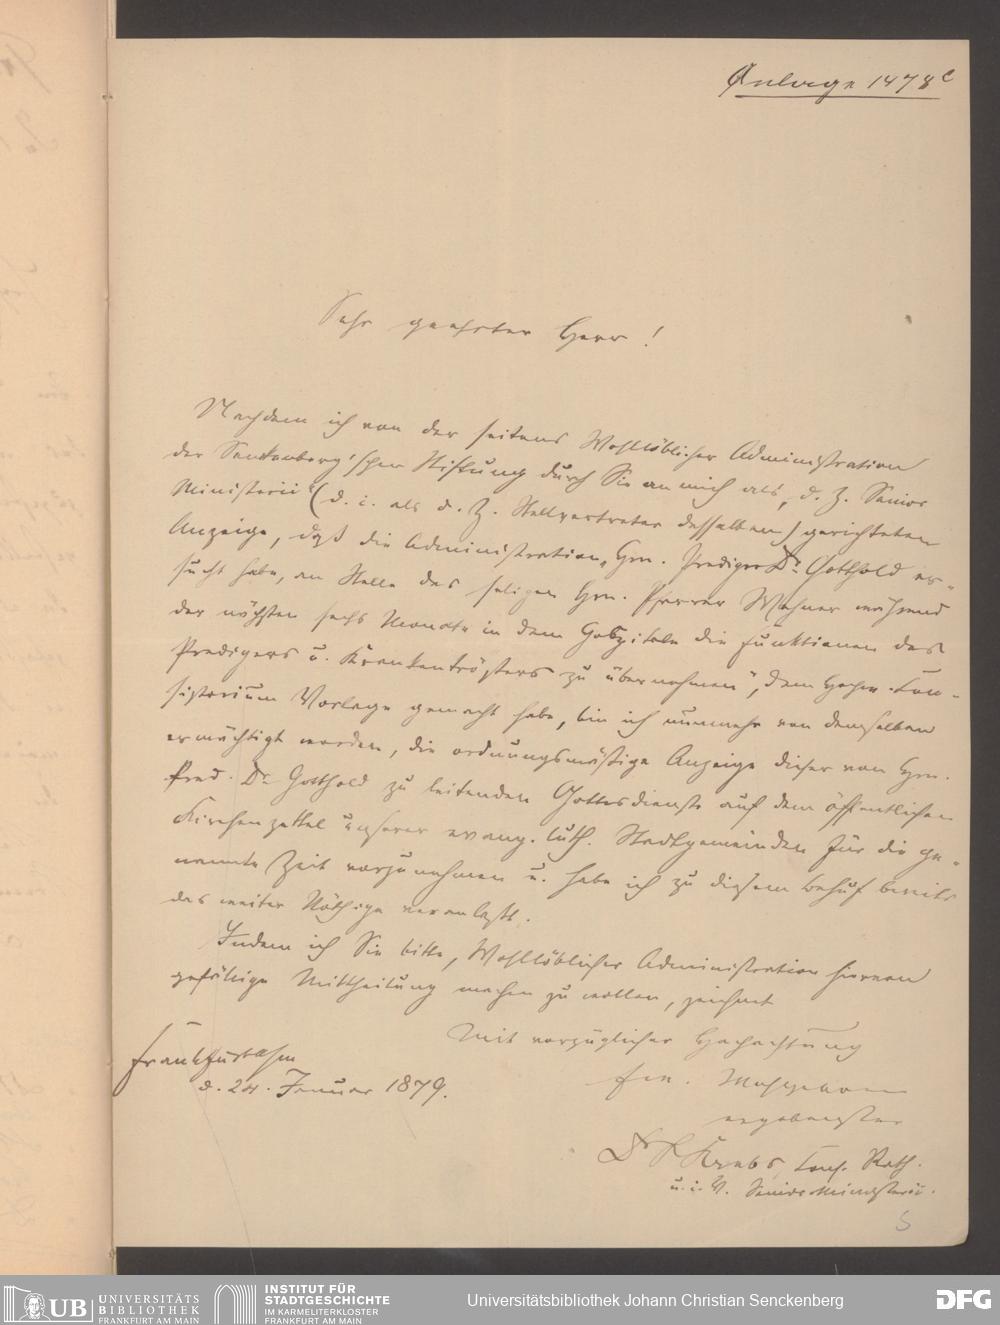 Anlage 1478c
Sehr geehrter Herr!
Nachdem ich von der seitens Wohllöblicher Administration
der Senckenberg'schen Stiftung durch Sie an mich als, d. Z. Senior
Ministerii (d. i. als d. Z. Stellvertreter desselben) gerichteten
Anzeige, daß die Administration „Hrn. Prediger Dr. Gotthold er-
sucht habe, an Stelle des seligen Hrn. Pfarrer während
der nächsten sechs Monate in dem Hospitale die Funktionen des
Predigers u. Krankentrösters zu übernehmen", dem Hochw. Con-
sistorium Vorlage gemacht habe, bin ich nunmehr von demselben
ermächtigt worden, die ordnungsmäßige Anzeige dieser von Hrn.
Pred. Dr. Gotthold zu leitenden Gottesdienste auf dem öffentlichen
Kirchenzettel unserer evang. luth. Stadtgemeinden für die ge-
nannte Zeit vorzunehmen u. habe ich zu diesem Behuf bereits
das weiter Nöthige veranlaßt.
Indem ich Sie bitte, Wohllöblicher Administration hiervon
gefällige Mittheilung machen zu wollen, zeichnet
Mit vorzüglicher Hochachtung
Frankfurt a/m
d. 24. Januar 1879.
ergebenster
Dr. Krebs, Cons. Rath.
u. i. V. Senior Ministerii.
5
UB UNIVERSITÄTS
BIBLIOTHEK
FRANKFURT AM MAIN
INSTITUT FÜR
STADTGESCHICHTE
IM KARMELITERKLOSTER
FRANKFURT AM MAIN
Universitätsbibliothek Johann Christian Senckenberg
DFG